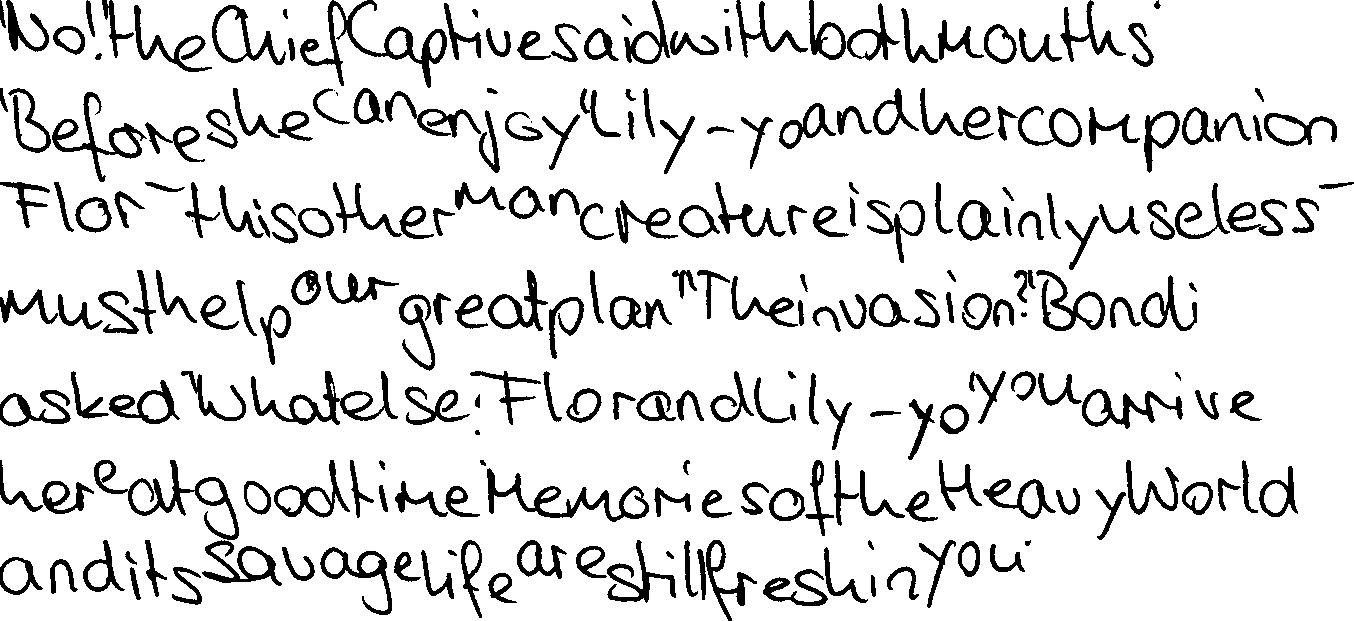 "No!" the Chief Captive said with both mouths.
"Before she can enjoy "Lily-yo and her companion
Flor - this other man creature is plainly useless -
must help our great plan" "The invasion?" Bondi
asked "What else? Flor and Lily-yo you arrive
here at good time Memories of the Heavy World
and its savage life are still fresh in you.